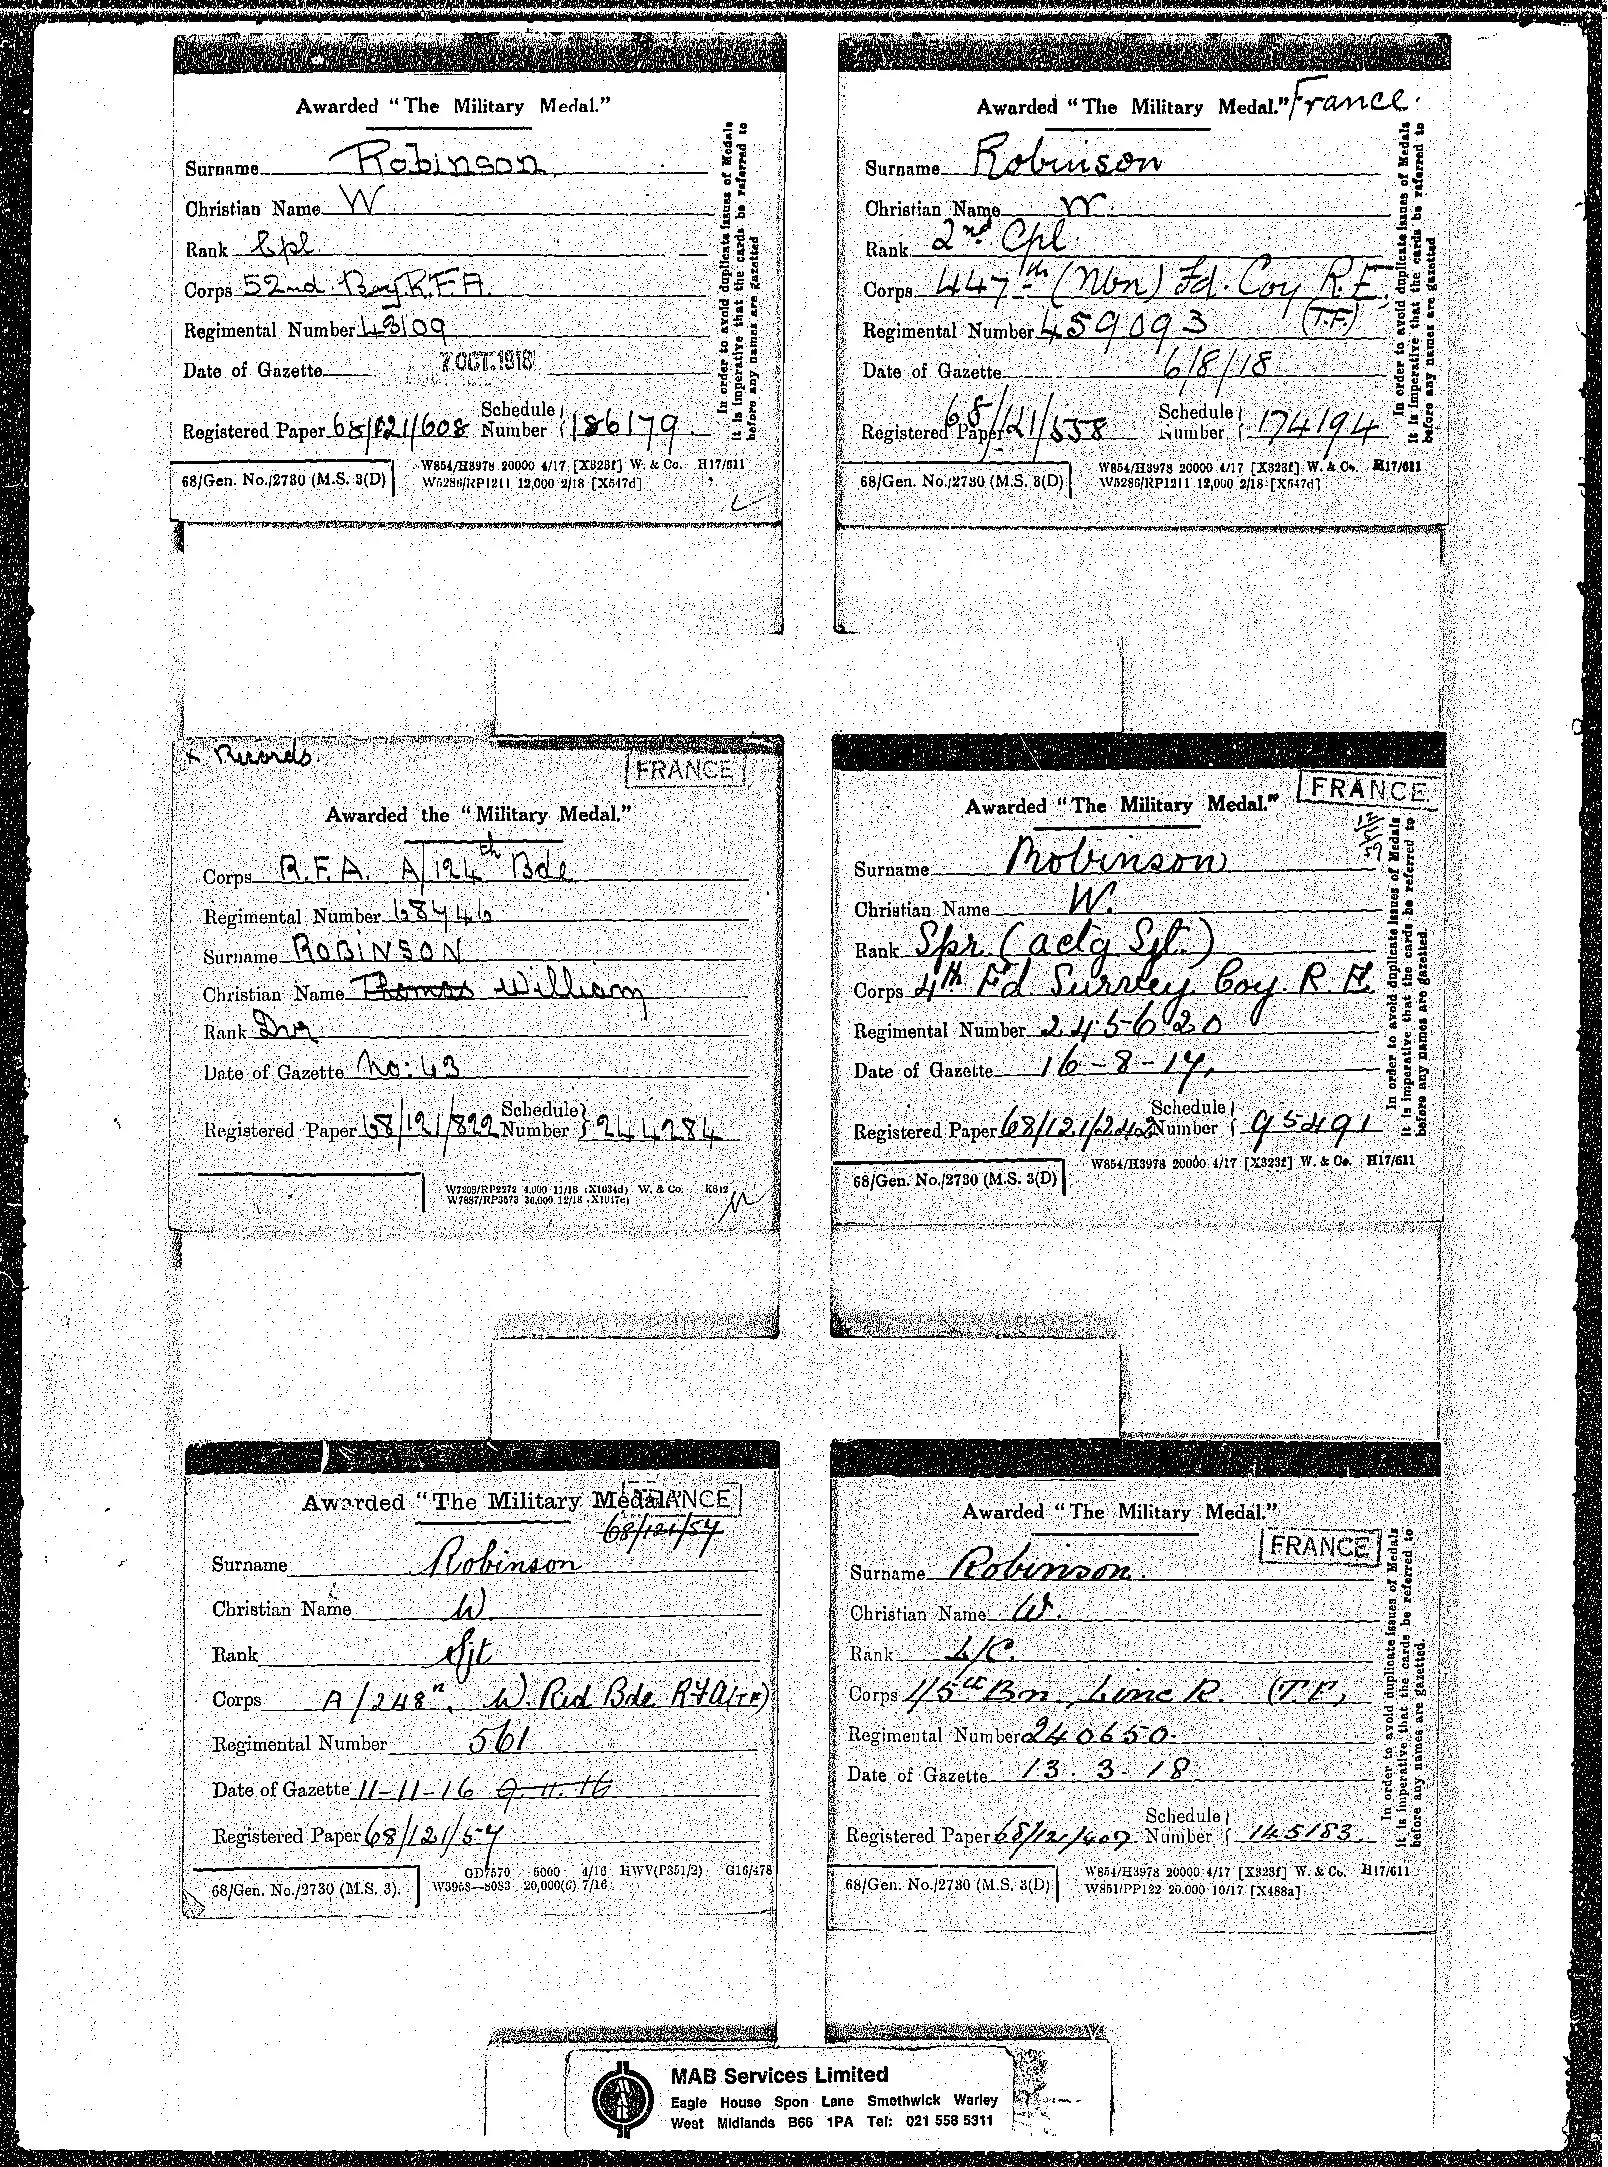 Awarded "The Military Medal."
Surname Robinson
Christian Name W
Rank Cpl
Corps 52nd Bay R.F.A.
Regimental Number 43109
Date of Gazette 7 OCT. 1918
Registered Paper 68/121/608 Schedule Number 186179
68/Gen. No./2730 (M.S. 3(D)
W854/H3978 20000 4/17 [X323f] W. & Co. H17/611
W5286/RP1211 12,000 2/18 [X547d]
In order to avoid duplicate issues of Medals
it is imperative that the cards be referred to
before any names are gazetted
Awarded "The Military Medal." France.
Surname Robinson
Christian Name W.
Rank 2nd Cpl
Corps 447th (Nbn) Fd. Coy R.E.
(T.F.)
Regimental Number 459093
Date of Gazette 6/8/18
Registered Paper 68/121/558 Schedule Number 174194
68/Gen. No./2730 (M.S. 3(D)
W854/H3978 20000 4/17 [X323f] W. & Co. H17/611
W5286/RP1211 12,000 2/18 [X547d]
In order to avoid duplicate issues of Medals
it is imperative that the cards be referred to
before any names are gazetted
Records.
FRANCE
Awarded the "Military Medal."
Corps R.F.A. A/124th Bde
Regimental Number 68746
Surname ROBINSON
Christian Name Thomas William
Rank Dvr
Date of Gazette No: 43
Registered Paper 68/121/822 Schedule Number 244284
W7209/RP2272 4,000 11/18 (X1034d) W. & Co. K612
W7887/RP3573 30,000 12/18 (X1017c)
FRANCE
Awarded "The Military Medal."
Surname Robinson
Christian Name W.
Rank Spr. (actg Sjt.)
Corps 4th Fd Survey Coy. R.E.
Regimental Number 245620
Date of Gazette 16-8-17.
Registered Paper 68/121/242 Schedule Number 95491
68/Gen. No./2730 (M.S. 3(D)
W854/H3978 20000 4/17 [X323f] W. & Co. H17/611
In order to avoid duplicate issues of Medals
it is imperative that the cards be referred to
before any names are gazetted.
Awarded "The Military Medal."
FRANCE
68/121/57
Surname Robinson
Christian Name W
Rank Sjt
Corps A/248n, W. Rid Bde RFA (TF)
Regimental Number 561
Date of Gazette 11-11-16 9.11.16
Registered Paper 68/121/57
68/Gen. No./2730 (M.S. 3).
GD7570 5000 4/16 HWV(P351/2) G16/478
W3958—8083 20,000(6) 7/16
Awarded "The Military Medal."
FRANCE
Surname Robinson
Christian Name W.
Rank L/C.
Corps 1/5th Bn, Linc R. (T.F.)
Regimental Number 240650.
Date of Gazette 13.3.18
Registered Paper 68/121/407 Schedule Number 145183
68/Gen. No./2730 (M.S. 3(D)
W854/H3978 20000 4/17 [X323f] W. & Co. H17/611
W851/PP122 20.000 10/17 [X488a]
In order to avoid duplicate issues of Medals
it is imperative that the cards be referred to
before any names are gazetted.
MAB Services Limited
Eagle House Spon Lane Smethwick Warley
West Midlands B66 1PA Tel: 021 558 5311